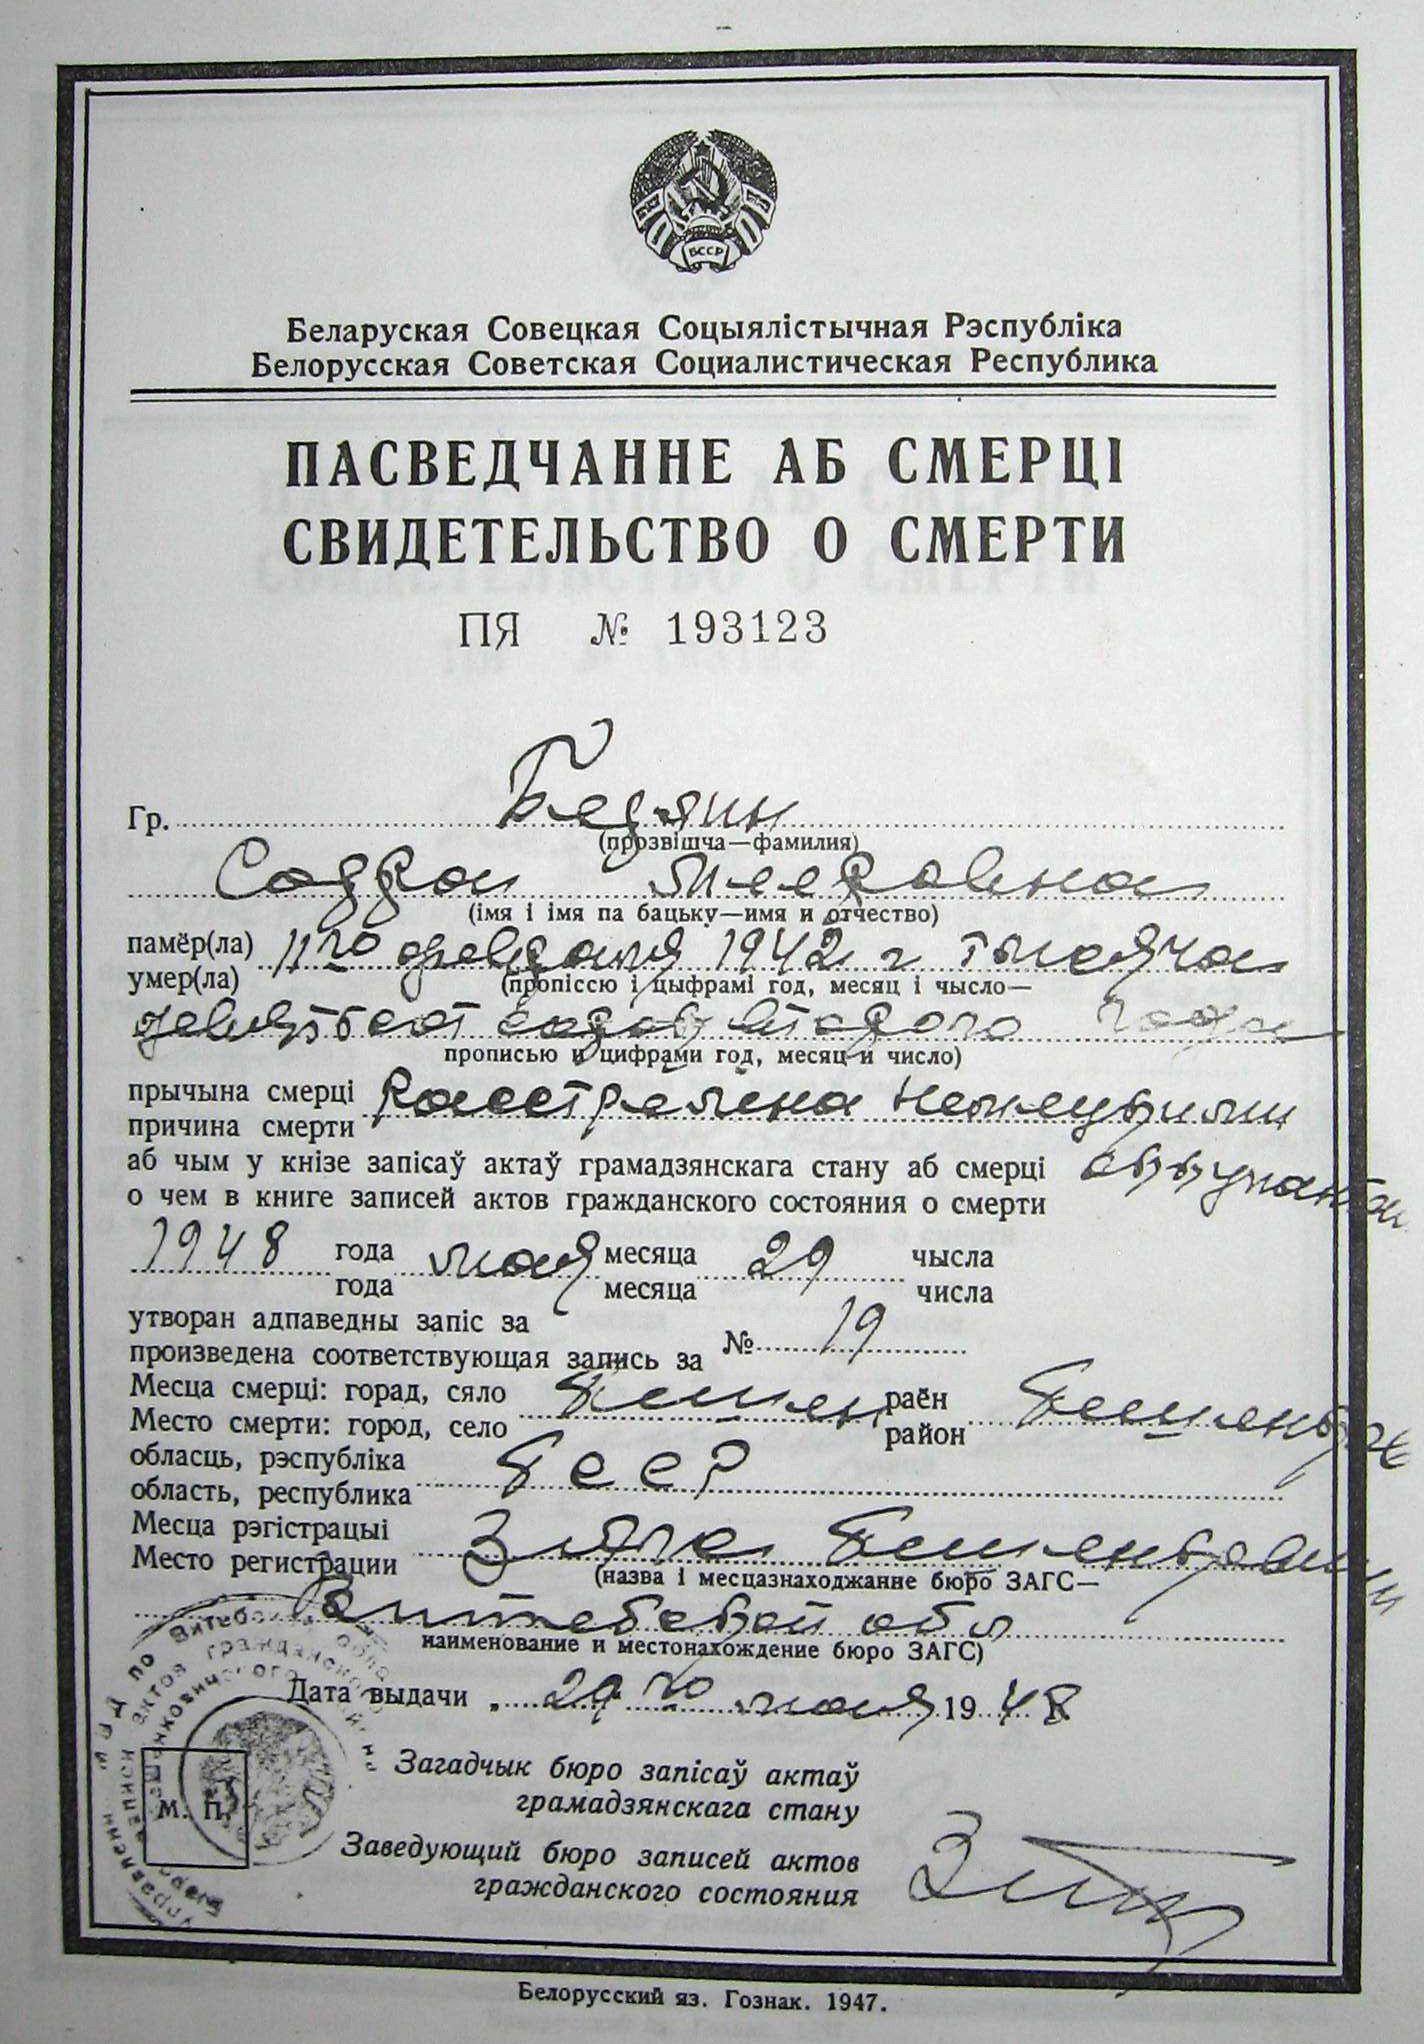 БССР
Беларуская Совецкая Соцыялістычная Рэспубліка
Белорусская Советская Социалистическая Республика
ПАСВЕДЧАННЕ АБ СМЕРЦІ
СВИДЕТЕЛЬСТВО О СМЕРТИ
ПЯ № 193123
Гр. Бедлин
(прозвішча—фамилия)
Мееровна
(імя і імя па бацьку—имя и отчество)
памёр(ла)
умер(ла)
11го февраля 1942 г тысяча
(пропіссю і цыфрамі год, месяц і чысло—
девятьсот сорок второго года
прописью и цифрами год, месяц и число)
прычына смерці
причина смерти
Расстреляна немецкими
аб чым у кнізе запісаў актаў грамадзянскага стану аб смерці
о чем в книге записей актов гражданского состояния о смерти
1948 года мая месяца 29 чысла
года месяца числа
утворан адпаведны запіс за
произведена соответствующая запись за
№ 19
Месца смерці: горад, сяло
Место смерти: город, село
раён
район
обласць, рэспубліка
область, республика
БССР
Месца рэгістрацыі
Место регистрации
(назва і месцазнаходжанне бюро ЗАГС—
Витебской обл
наименование и местонахождение бюро ЗАГС)
Дата выдачи „ 29 го мая 1948
М. П.
Загадчык бюро запісаў актаў
грамадзянскага стану
Заведующий бюро записей актов
гражданского состояния
Белорусский яз. Гознак. 1947.